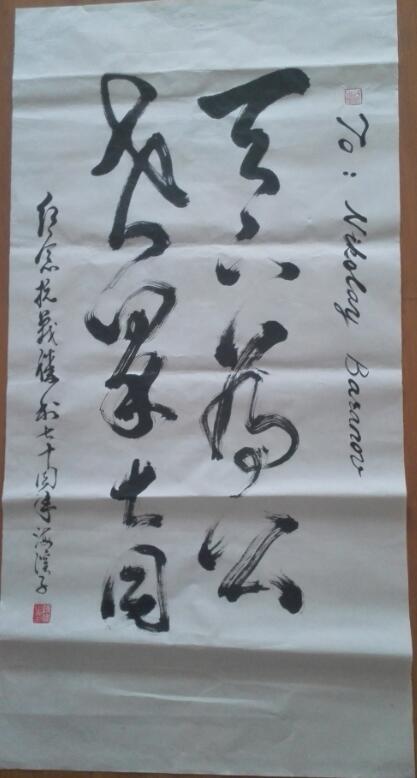 To: Nikolay Baranov
天下为公
世界大同
纪念抗战胜利七十周年